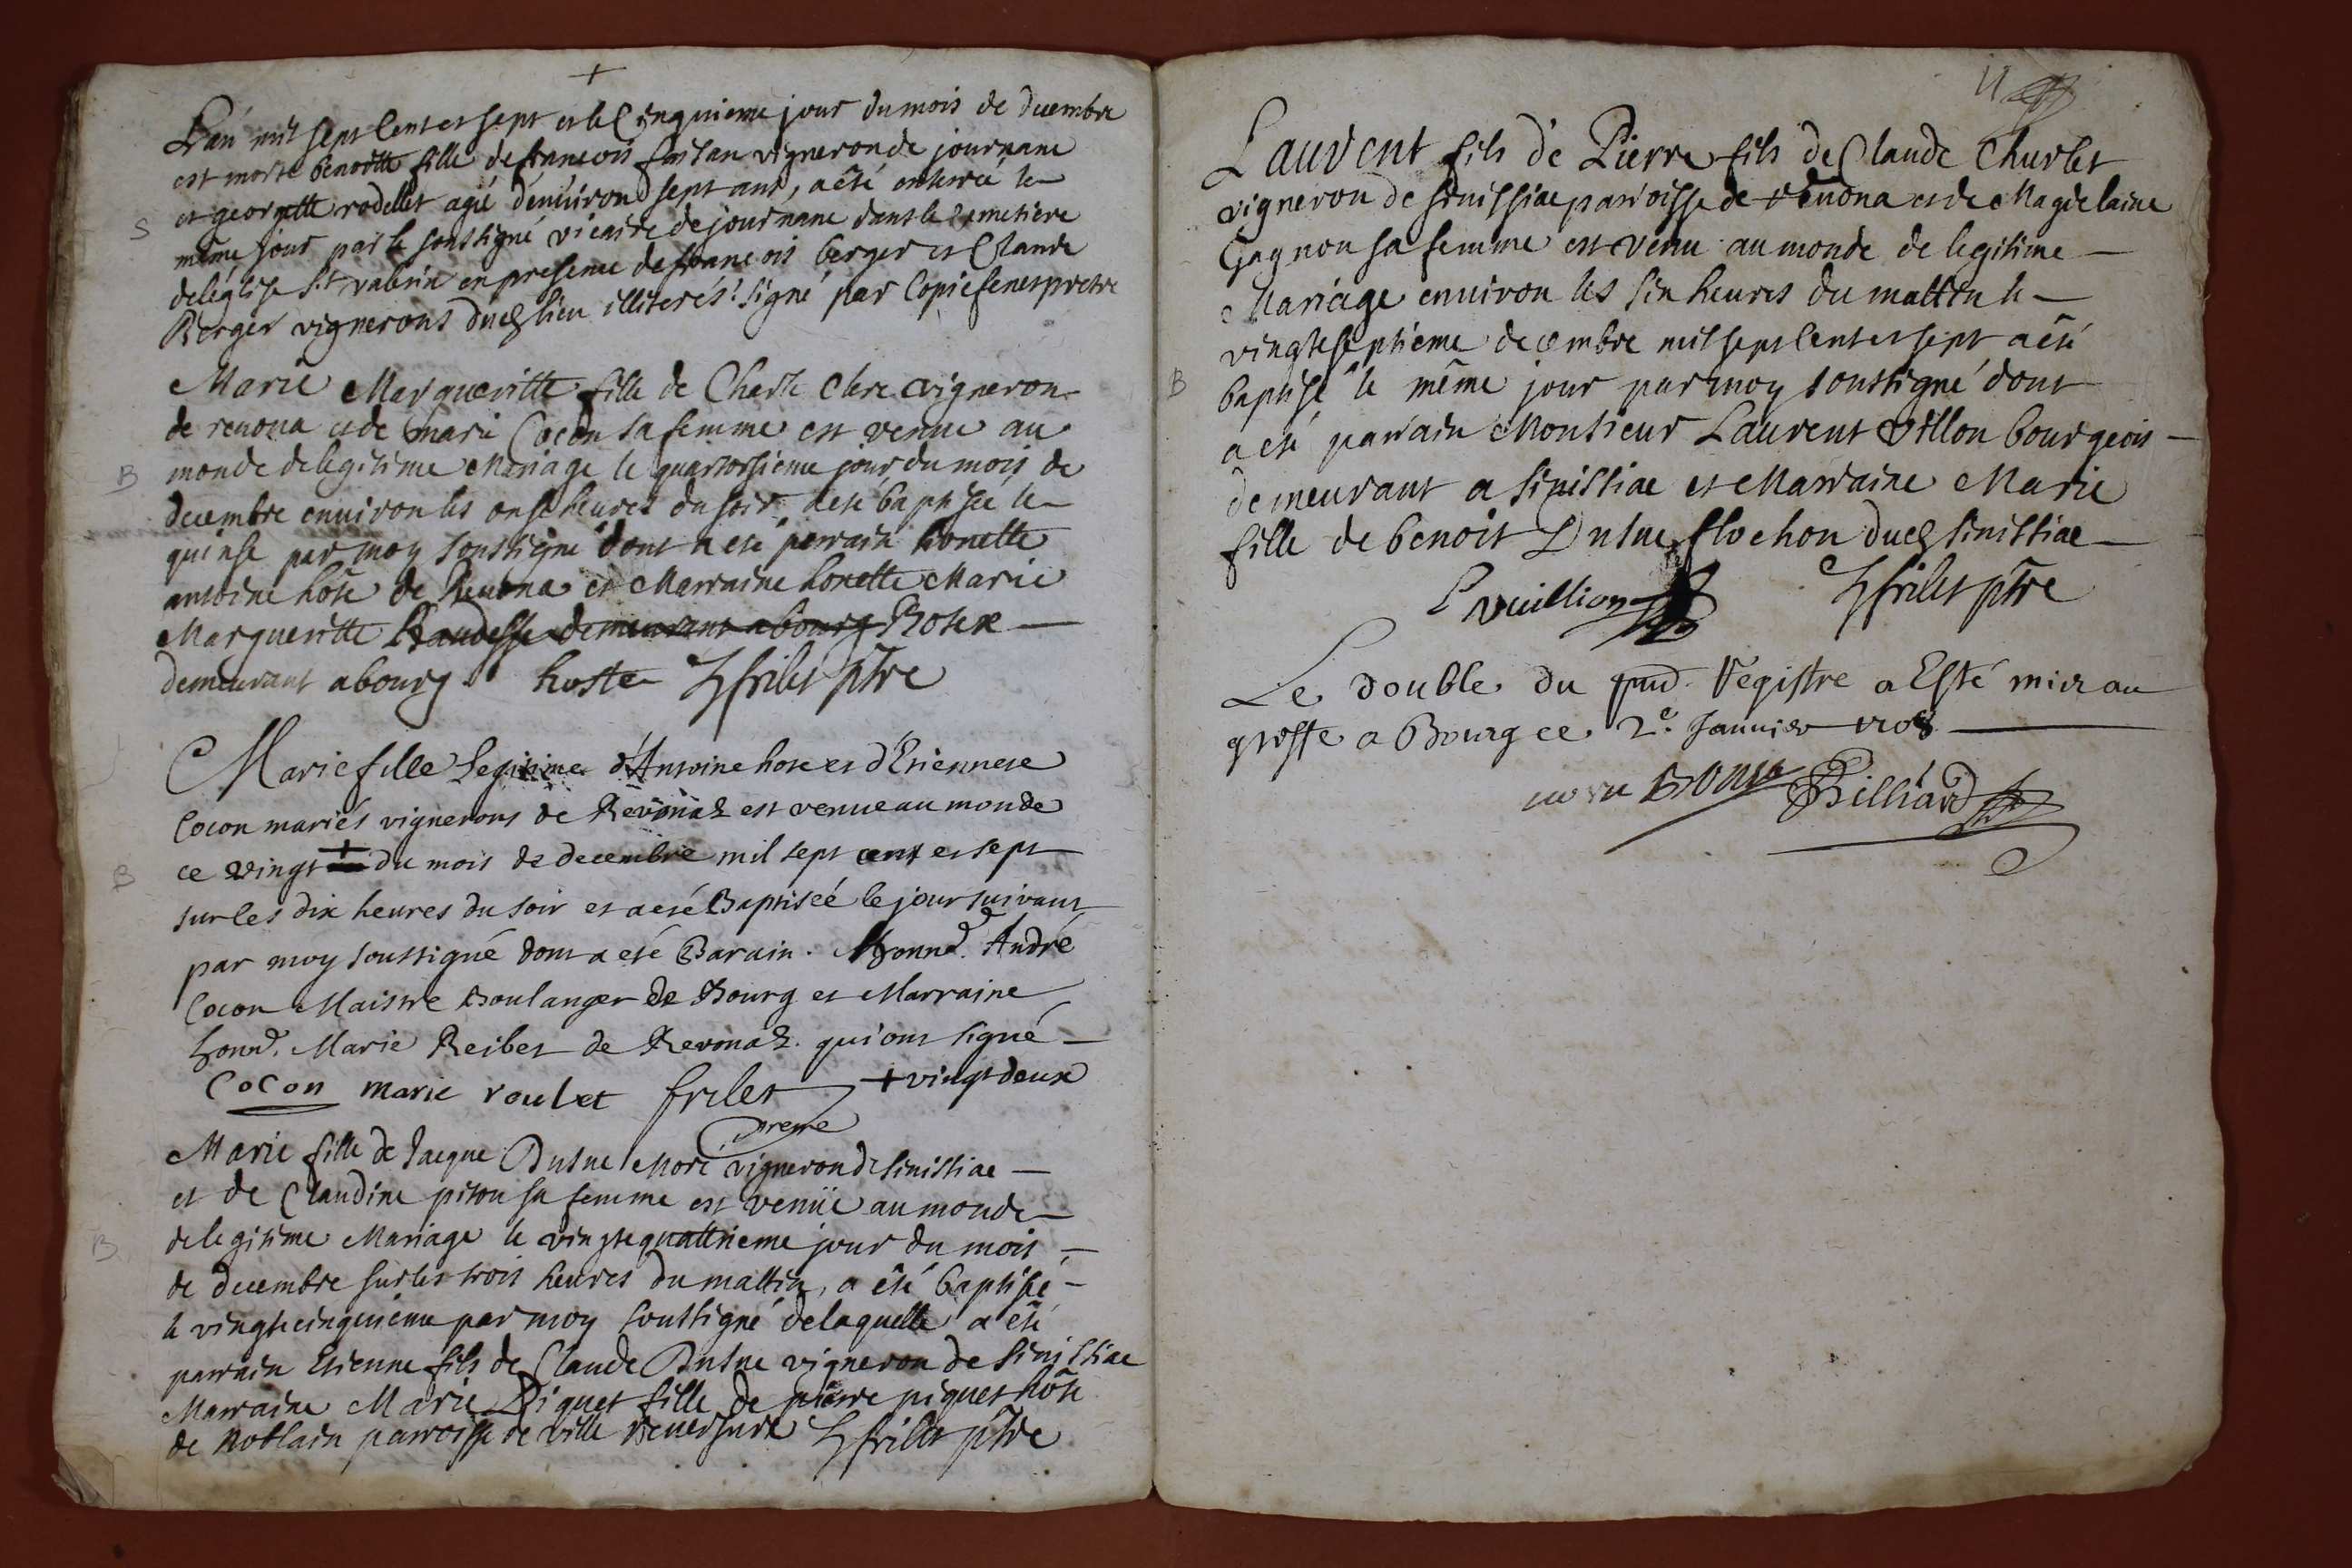 +
L'an mil sept cent et sept et le Cinquieme jour du mois de decembre
est morte benoitte fille de francois vigneron de journanc
S et georgette rodellet agié d'enuiron sept ans, a été enterrée le
même jour par le soussigné vicaire de journanc dans le cemetiere
de l'église St valerin en presence de francois berger et Claude
Berger vignerons dud lieu illiterés! Signé par Copie fenet pretre
Marie Margueritte fille de Charle Clerc vigneron
de reuona et de marie Cocon sa femme est venue au
B monde de legitime Mariage le quattorsieme jour du mois de
decembre enuiron les onse heures du soir a eté baptisée le
quinse par moy soussigné dont a eté parrain honette
antoine hôte de Reuona et Marraine honette Marie
Margueritte Baudesse demeurant a bourg Rosex —
demeurant a bourg. hoste frilet ptre
Marie fille Legitime d'Antoine hote et d'Etiennete
Cocon mariés vignerons de Revonaz est venue au monde
B ce vingt + du mois de decembre mil sept cent et sept
sur les dix heures du soir et a eté Baptiseé le jour suivant
par moy soussigné dont a eté Parain. honne. André
Cocon Maistre Boulanger de Bourg et Marraine
honne. Marie Reibet de Revonaz. qui ont signé —
cocon marie roulxt frilet + vingt deux
pretre
Marie fille de Jacque Dutue Moré vigneron de sinissiac —
et de Claudine piton sa femme est venüe au monde
B de legitime Mariage le vingtequattrieme jour du mois —
de decembre sur les trois heures du mattin, a êté baptisé —
le vingtecinquieme par moy soussigné de laquelle a êté
parrain Etienne fils de Claude Dutue vigneron de Sinissiac
Marraine Marie Piquet fille de pierre piquet hôte
de Noblain parroisse de ville Reuersure frilet ptre
11
Laurent fils de Pierre fils de Claude Churlet
vigneron de senissiac parroisse de reuona et de Magdelaine
Gagnon sa femme est venu au monde de legitime —
Mariage enuiron les six heures du mattin le —
vingteseptieme decembre mil sept cent et sept a été
B baptisé le même jour par moy soussigné dont
a eté parrain Monsieur Laurent Villon bourgeois —
demeurant a sinissiac et Marraine Marie
fille de benoit Dutue flochon dud sinissiac —
L vuillion frilet ptre
Le double du pnd. Registre a Esté mis au
greffe a Bourg ce 2e. Januier 1708 —
Billiard